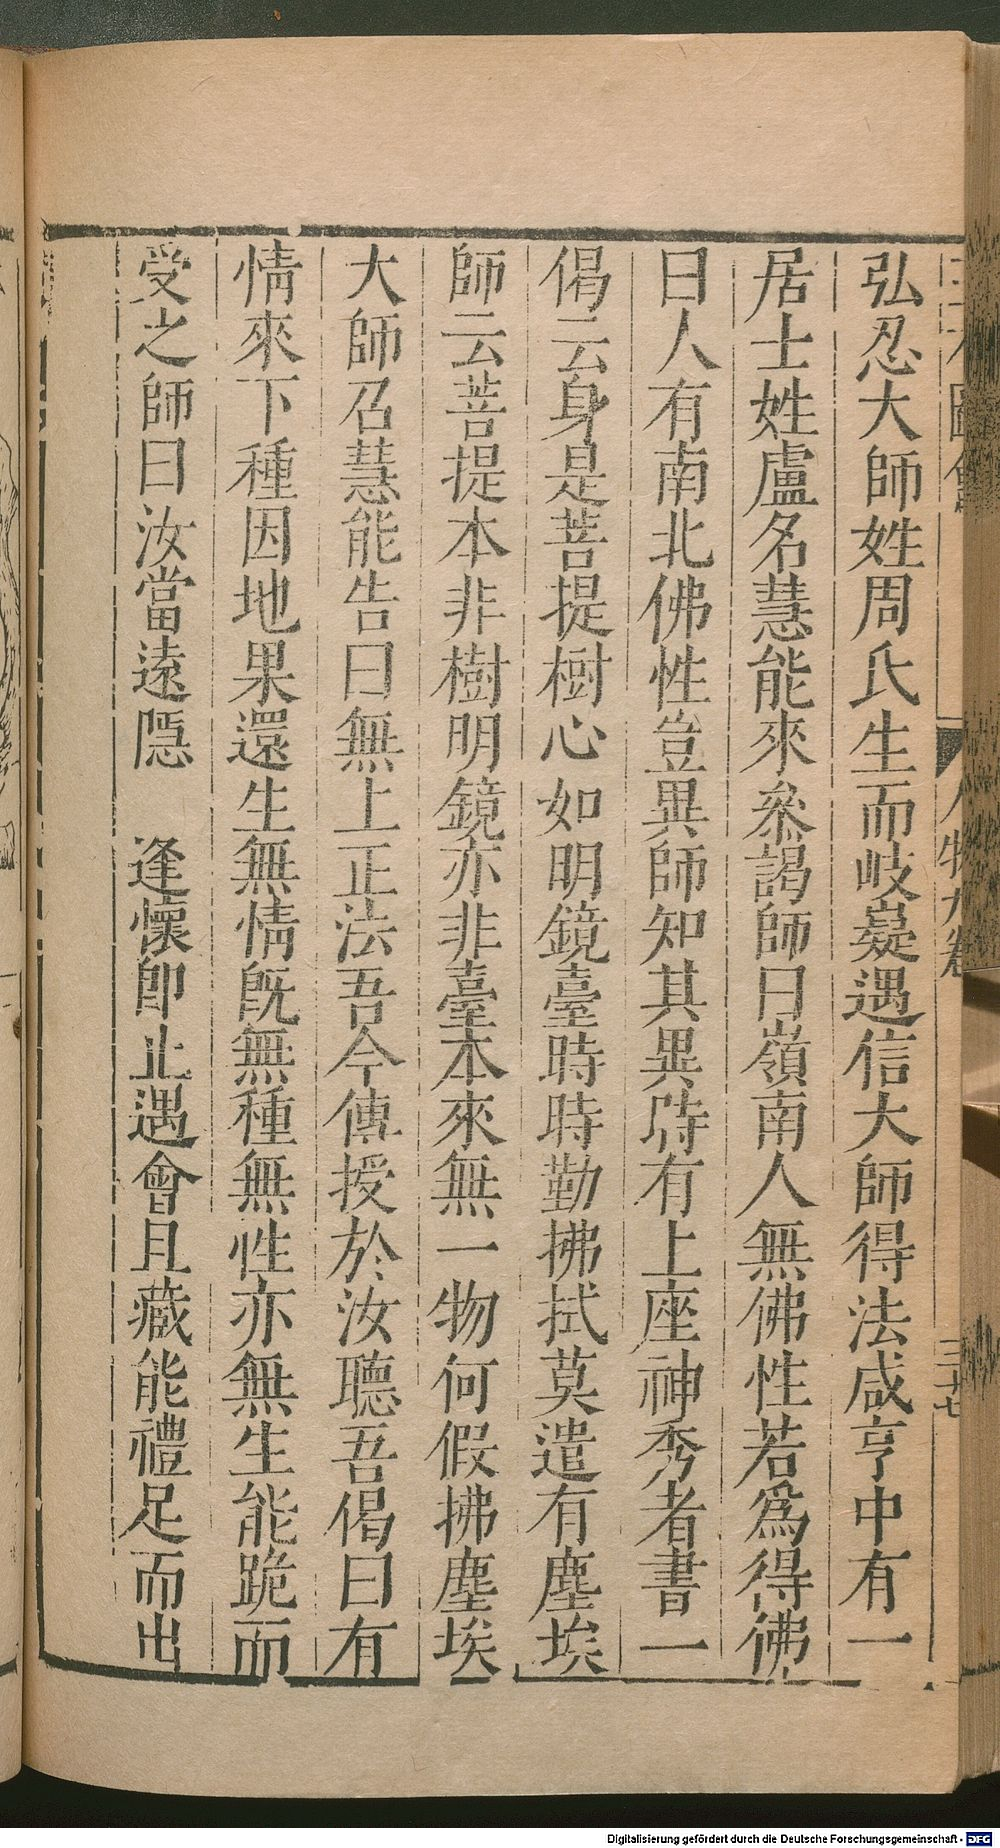 弘忍大師姓周氏生而岐嶷遇信大師得法咸亨中有一
居士姓盧名慧能來叅謁師曰嶺南人無佛性若爲得佛
曰人有南北佛性豈異師知其異時有上座神秀者書一
偈云身是菩提樹心如明鏡臺時時勤拂拭莫遣有塵埃
師云菩提本非樹明鏡亦非臺本來無一物何假拂塵埃
大師召慧能告曰無上正法吾今傳授於汝聽吾偈曰有
情來下種因地果還生無情旣無種無性亦無生能跪而
受之師曰汝當遠隱 逢懷卽止遇會且藏能禮足而出
人物九卷
三十七
Digitalisierung gefördert durch die Deutsche Forschungsgemeinschaft - DFG